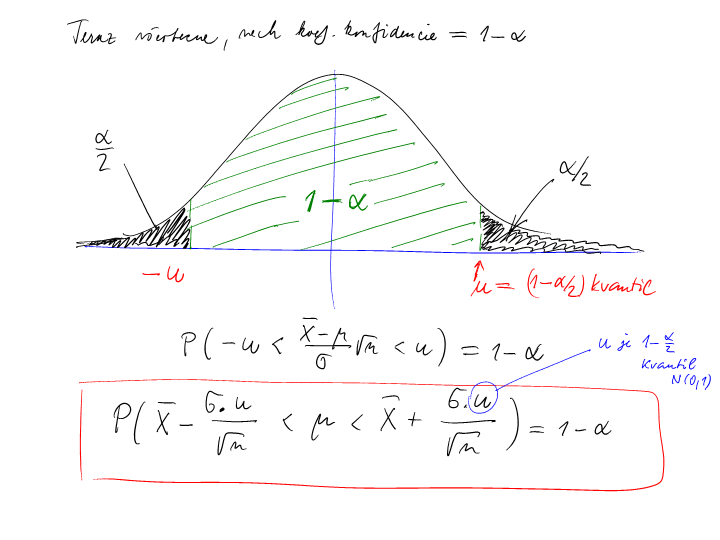 Teraz všeobecne, nech koef. konfidencie = 1-α
α/2
α/2
1-α
-u
u = (1-α/2) kvantil
P(-u < (X̄-μ)/σ √n < u) = 1-α
u je 1-α/2
kvantil
N(0,1)
P(X̄ - σ.u/√n < μ < X̄ + σ.u/√n) = 1-α